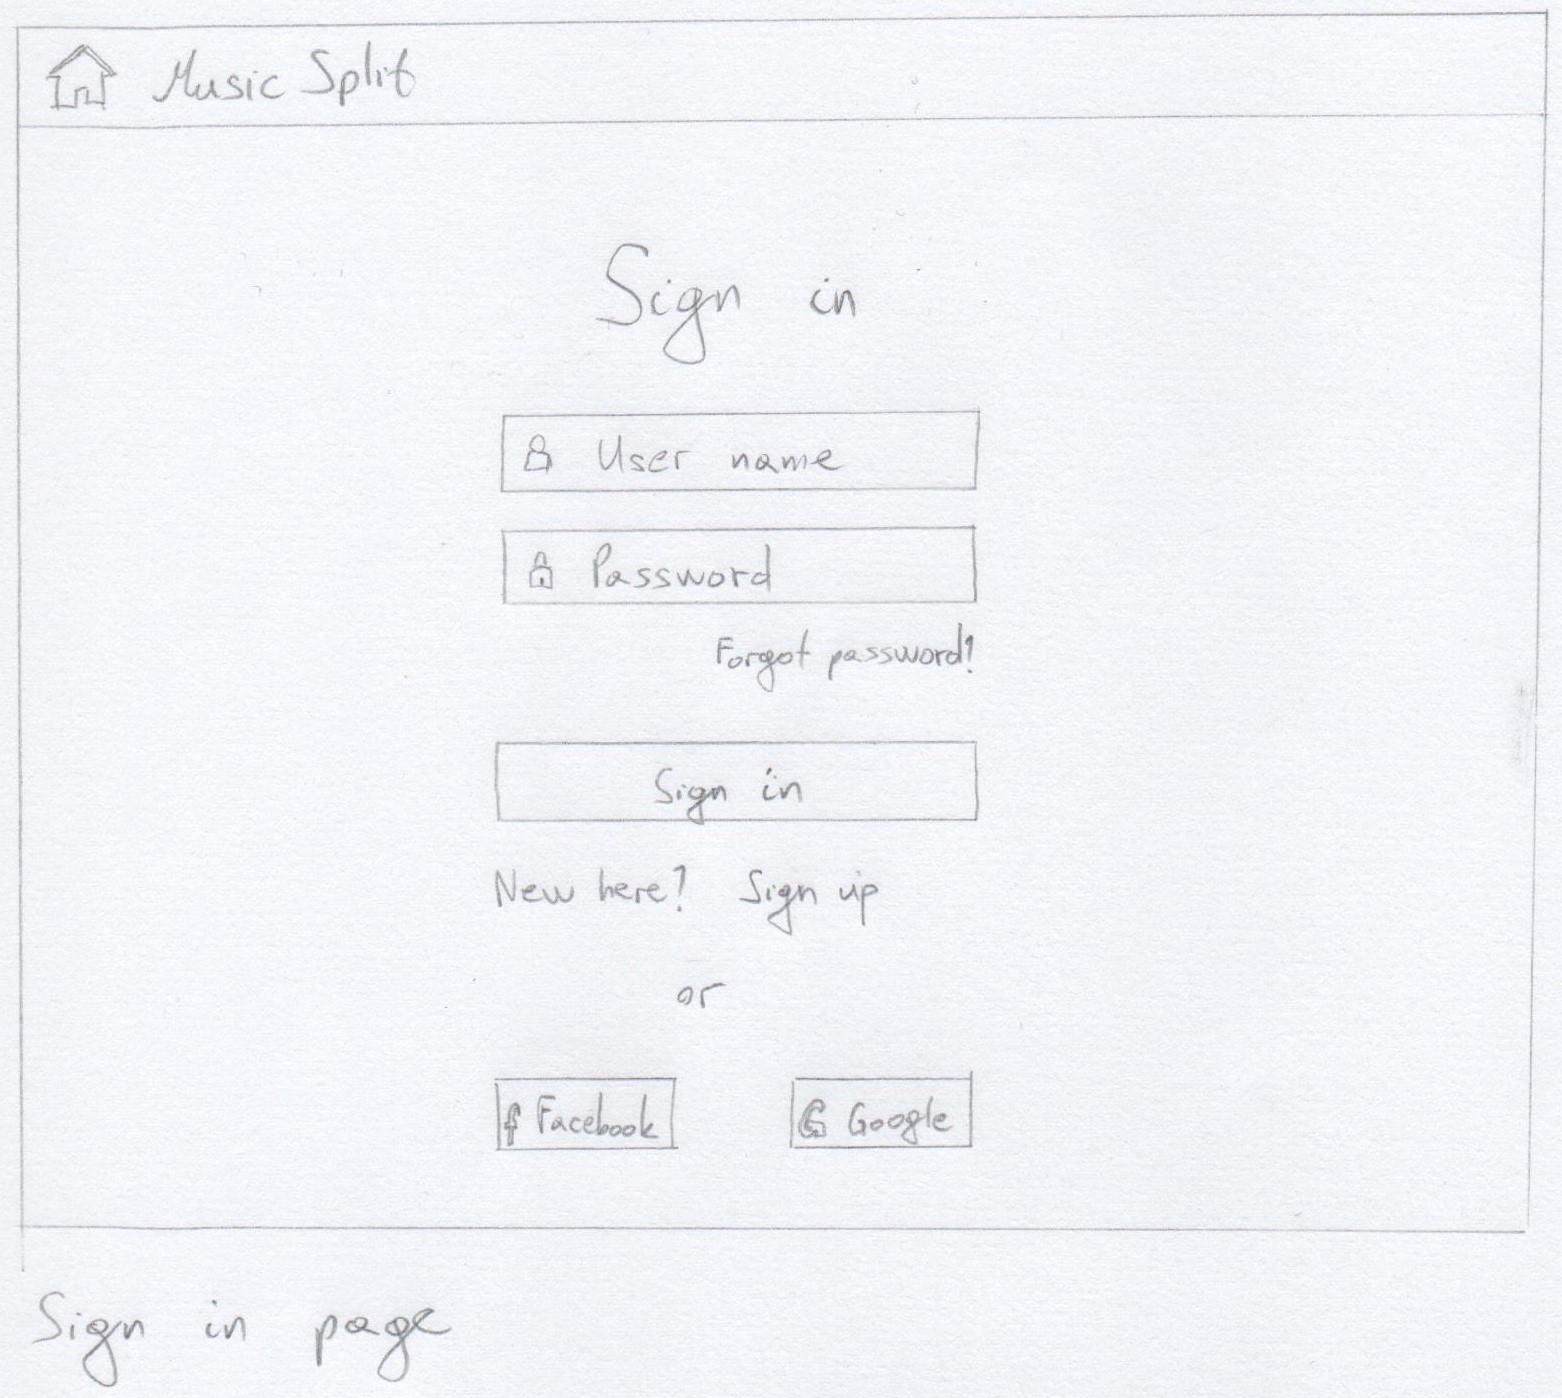 Music Split
Sign in
User name
Password
Forgot password?
Sign in
New here? Sign up
or
f Facebook
G Google
Sign in page